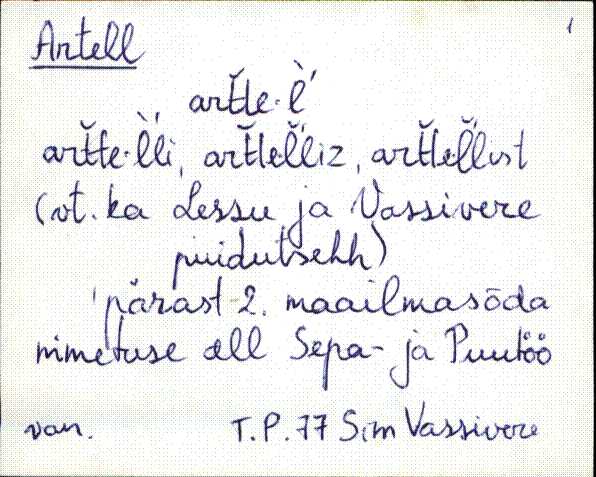 1
Artell
art̆t̆e·l̀'
art̆t̆e·l̀'li, art̆t̆el̆'liz, art̆t̆el̆'list
(vt. ka Lessu ja Vassivere
puidutsehh)
pärast 2. maailmasõda
nimetuse all Sepa- ja Puutöö
van. T.P. 77 Sim Vassivere